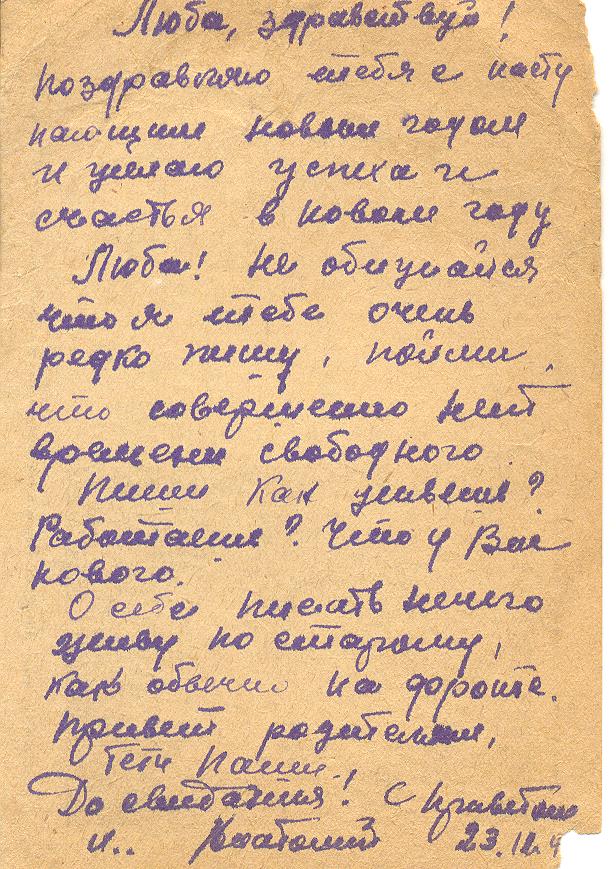 Люба, здравствуй!
Поздравляю тебя с насту
пающим новым годом
и желаю успеха и
счастья в новом году
Люба! Не обижайся
что я тебе очень
редко пишу, пойми,
что совершенно нет
времени свободного.
Пиши как живешь?
Работаешь? Что у Вас
нового.
О себе писать нечего
живу по старому,
как обычно на фронте.
Привет родителям,
тети Паши.,
До свидания! С приветом
Анатолий 23.12.4